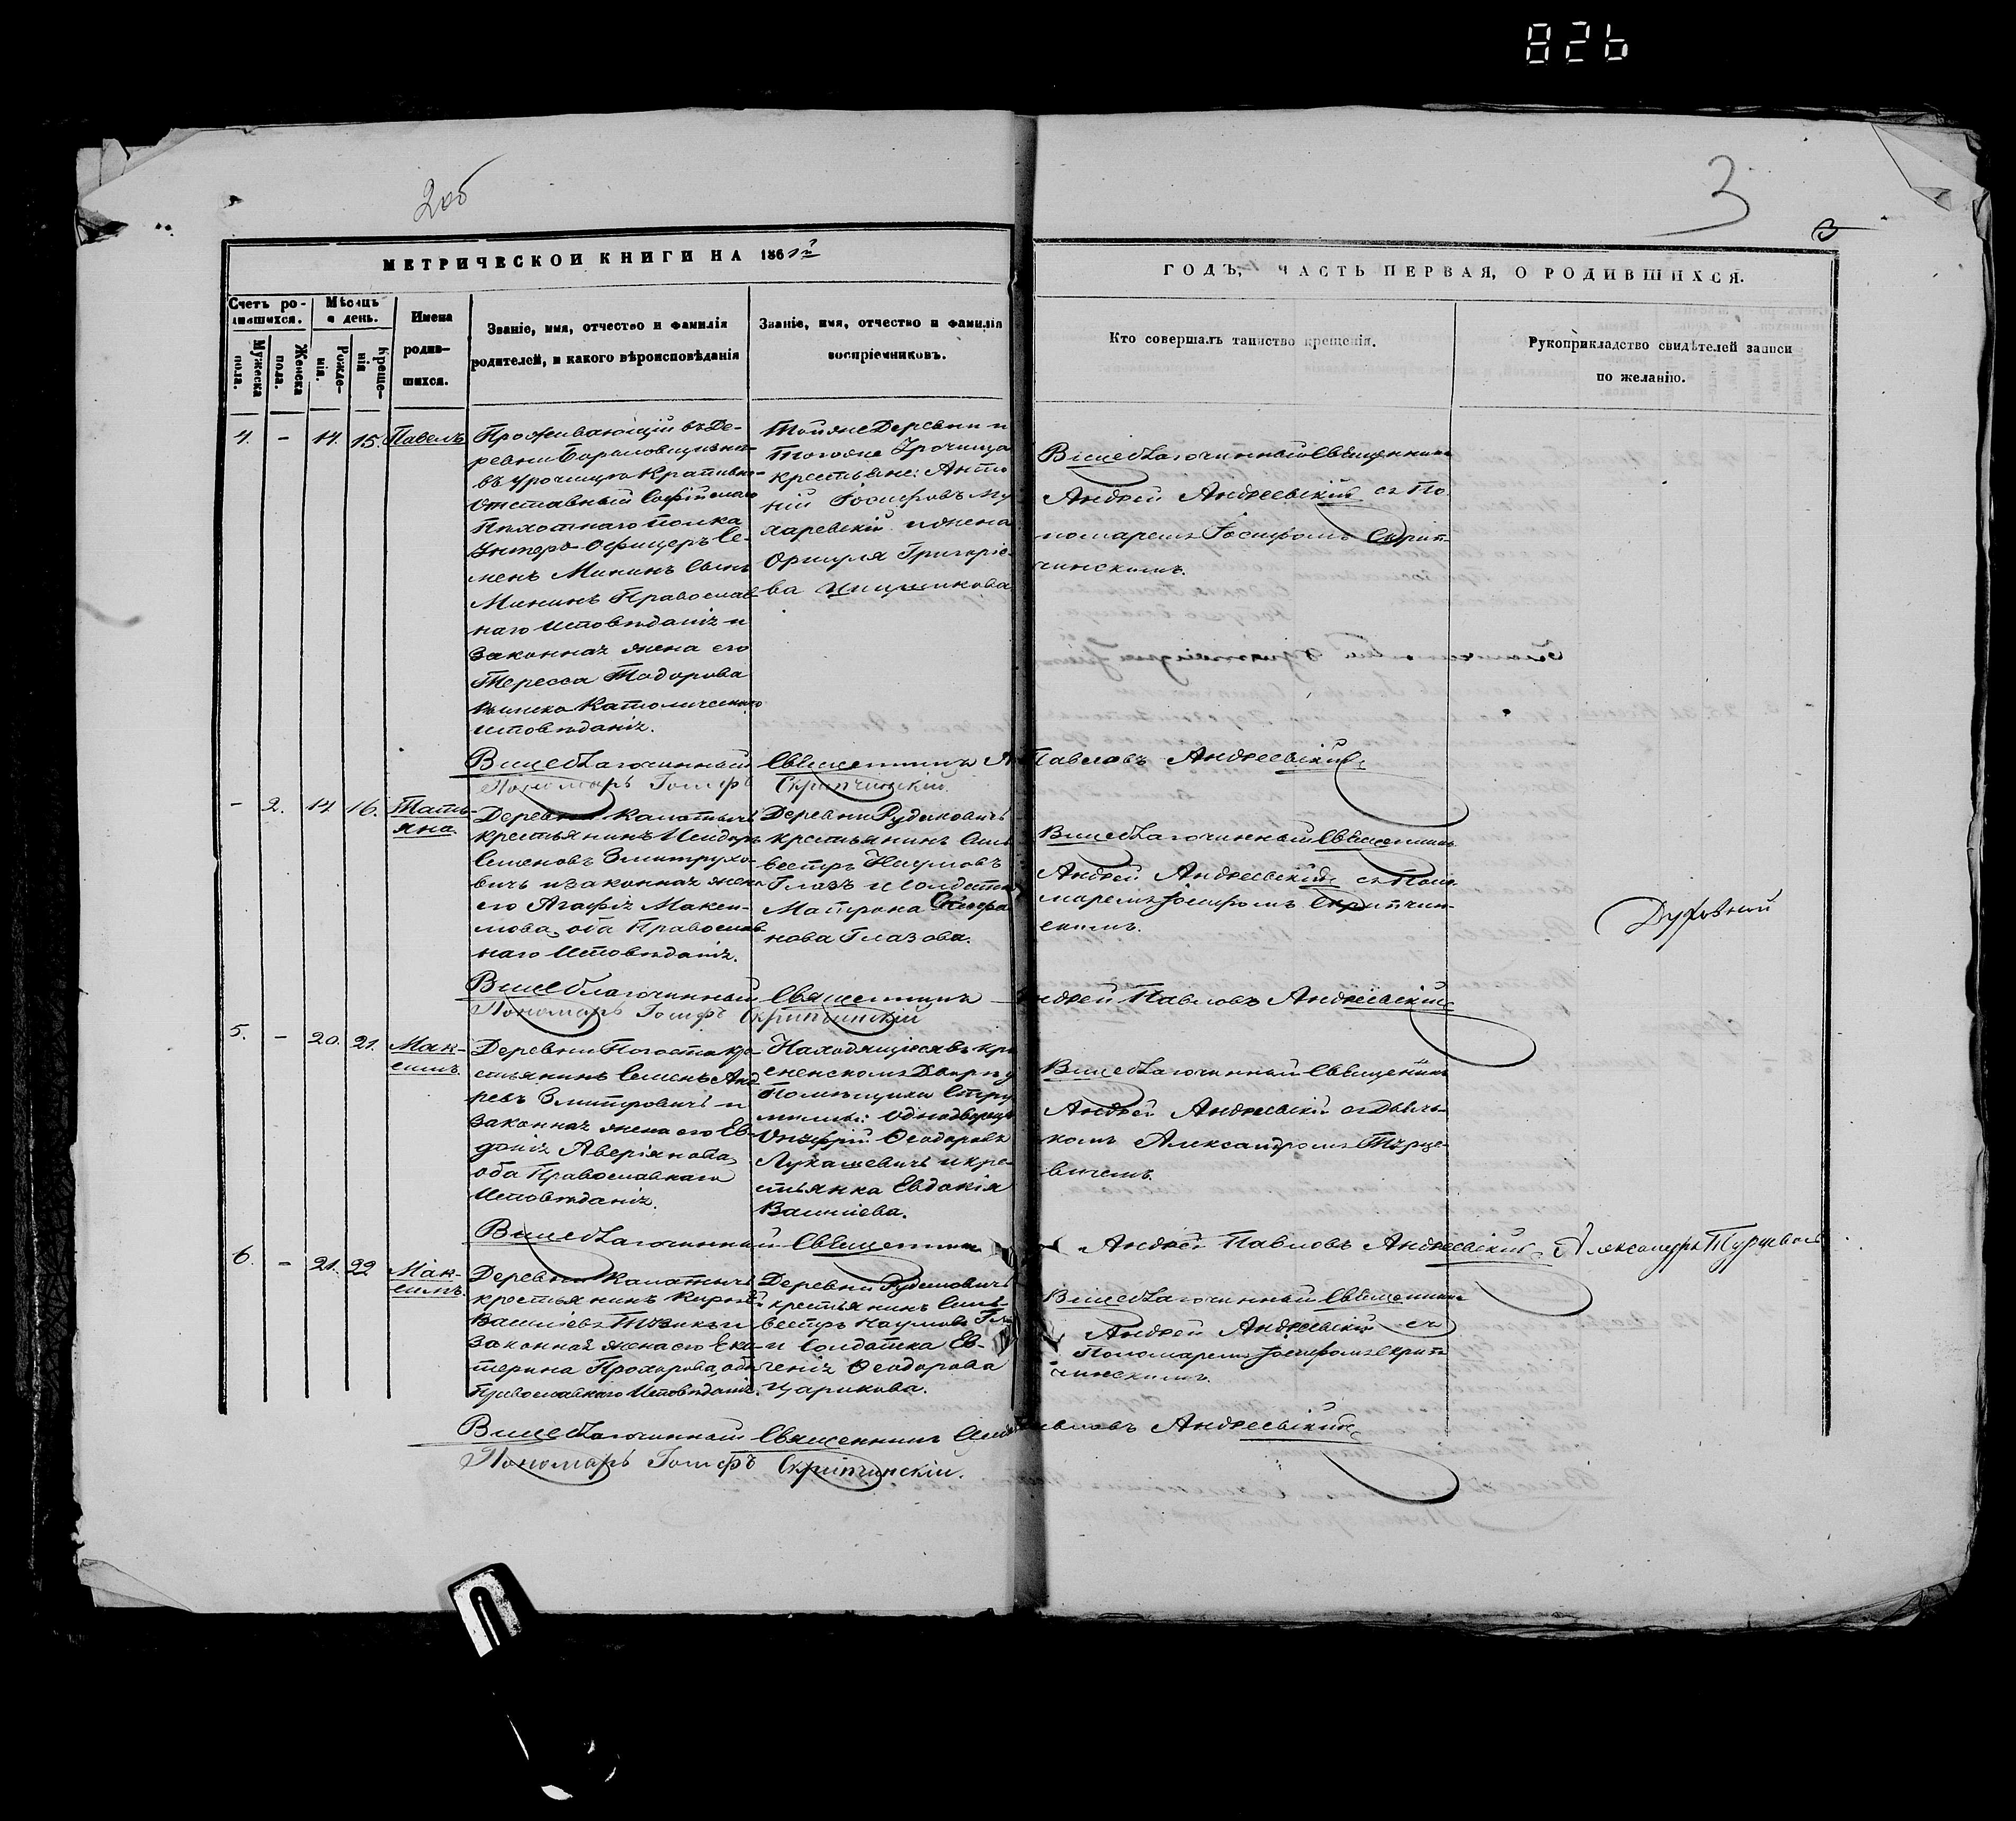 826
2об
3
3
МЕТРИЧЕСКОЙ КНИГИ НА 1861й
ГОДЪ, ЧАСТЬ ПЕРВАЯ, О РОДИВШИХСЯ.
Счетъ ро-
дившихся.
Мужеска пола.
Женска пола.
Мѣсяцъ
и день.
Рожде-
нія.
Креще-
нія
Имена
родив-
шихся.
Званіе, имя, отчество и фамилія
родителей, и какого вѣроисповѣданія
Званіе, имя, отчество и фамилія
воспріемниковъ.
Кто совершалъ таинство крещенія.
Рукоприкладство свидѣтелей записи
по желанію.
4. - 14. 15. Павелъ
Проживающій въ Де-
ревни
въ урочищѣ
Отставный Софійскаго
Пѣхотнаго полка
Унтеръ Офицеръ Се-
менъ Мининъ Сынъ
Мининъ Православ-
наго Исповѣданія и
законная жена его
Тересса Тодорова
Римско Католическаго
исповѣданія.
Тойже Деревни и
Тогоже Урочища
крестьяне: Анто
ній Іосифовъ
и жена
Григоріе-
ва
Вицеблагочинный Священникъ
Андрей Андреевскій съ По
номаремъ Іосифомъ Скрип-
чинскимъ.
Вицеблагочинный Священникъ Павловъ Андреевскій
Пономарь Іосифъ Скрипчинскій.
- 2. 14 16. Татья-
яна.
Деревни
крестьянинъ Исидоръ
Семеновъ Змитрухо-
вичъ и законная жена
его Агафія Макси-
мова, оба Православ
наго Исповѣданія.
Деревни Рудаковичь
крестьянинъ Сил
вестръ Наумовъ
Глазъ и солдатка
Матрона
нова Глазова.
Вицеблагочинный Священникъ
Андрей Андреевскій съ Поно
маремъ Іосифомъ Скрипчин-
скимъ.
Духовный
Вицеблагочинный Священникъ Андрей Павловъ Андреевскій
Пономарь Іосифъ Скрипчинскій
5. - 20. 21. Мак-
симъ.
Деревни Погоста кре
стьянинъ Семенъ Анд
реевъ Змитровичъ и
законная жена его Ев-
докія Аверіянова,
оба Православнаго
Исповѣданія.
Находящіеся въ
Дворѣ у
Помѣщика
Однодворецъ
Онуфрій Ѳеодоровъ
Лукашевичъ и кре-
стьянка Евдокія
Василіева.
Вицеблагочинный Священникъ
Андрей Андреевскій съ Дьяч-
комъ Александромъ Турце-
вичемъ.
Вицеблагочинный Священникъ Андрей Павловъ Андреевскій Александръ Турцевичъ
6. - 21. 22 Мак-
симъ.
Деревни
крестьянинъ
Василіевъ
законная жена его Ека-
терина Прохорова, оба
Православнаго Исповѣданія.
Деревни Рудаковичь
крестьянинъ Сил-
вестръ Наумовъ Гла
и Солдатка Ев-
генія Ѳеодорова
Царикова.
Вицеблагочинный Священникъ
Андрей Андреевскій съ
Пономаремъ Іосифомъ Скрип
чинскимъ.
Вицеблагочинный Священникъ Павловъ Андреевскій
Пономарь Іосифъ Скрипчинскій.